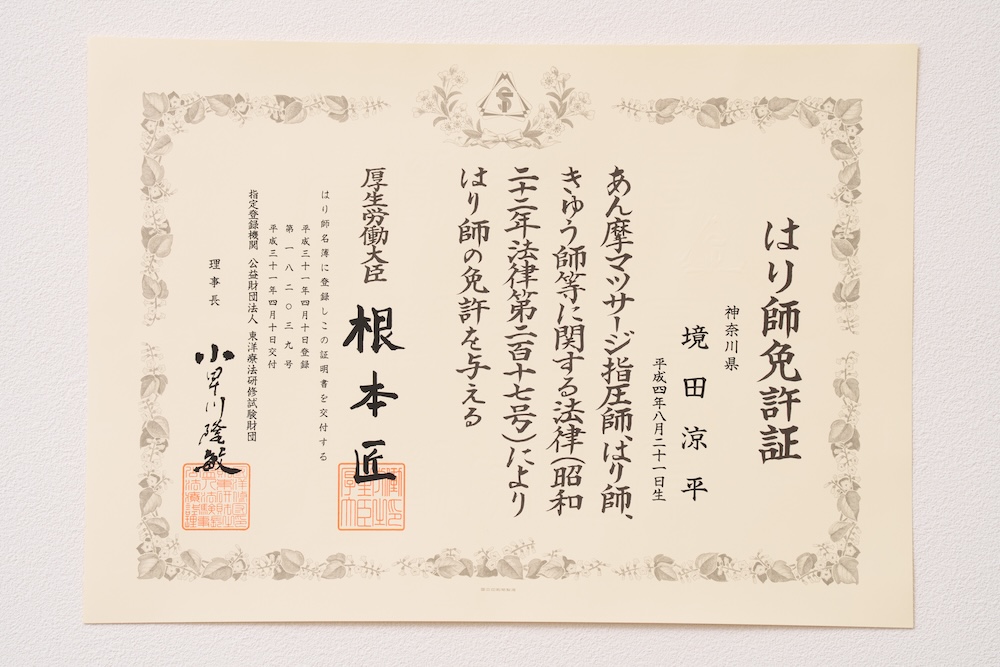 はり師免許証
神奈川県
境田涼平
平成四年八月二十一日生
あん摩マツサージ指圧師、はり師、
きゆう師等に関する法律(昭和
二十二年法律第二百十七号)により
はり師の免許を与える
厚生労働大臣 根本匠
はり師名簿に登録しこの証明書を交付する
平成三十一年四月十日登録
第一八二〇三九号
平成三十一年四月十日交付
指定登録機関 公益財団法人 東洋療法研修試験財団
理事長 小早川隆敏